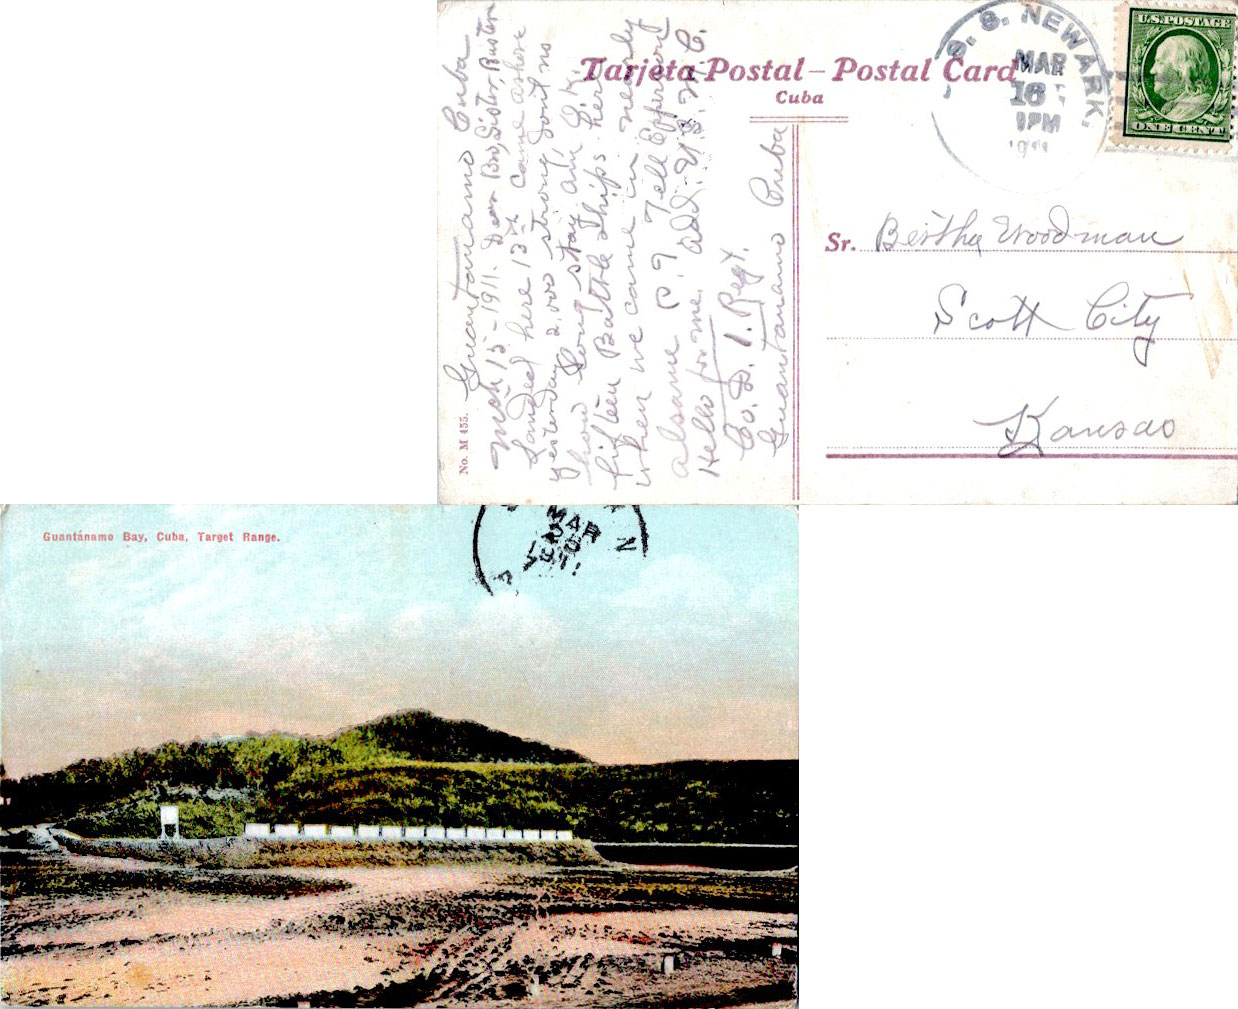 Tarjeta Postal – Postal Card
Cuba
U.S. POSTAGE
ONE CENT
S. NEWARK,
MAR
16
1PM
1911
Sr. Bertha Woodman
Scott City
Kansas
No. M 455.
Guantanamo Cuba
Mch 15-1911. Dear Bro, Sister, Buster
Landed here 13th came ashore
yesterday 2,000 strong, dont no
how Long stay am O.K.
fifteen Battle Ships here
when we came in nearly
alsame P. I. Tell Epperson
Hello for me. add. U.S.M.C.
Co. D. 1. Regt.
Guantanamo Cuba
Guantánamo Bay, Cuba, Target Range.
MAR